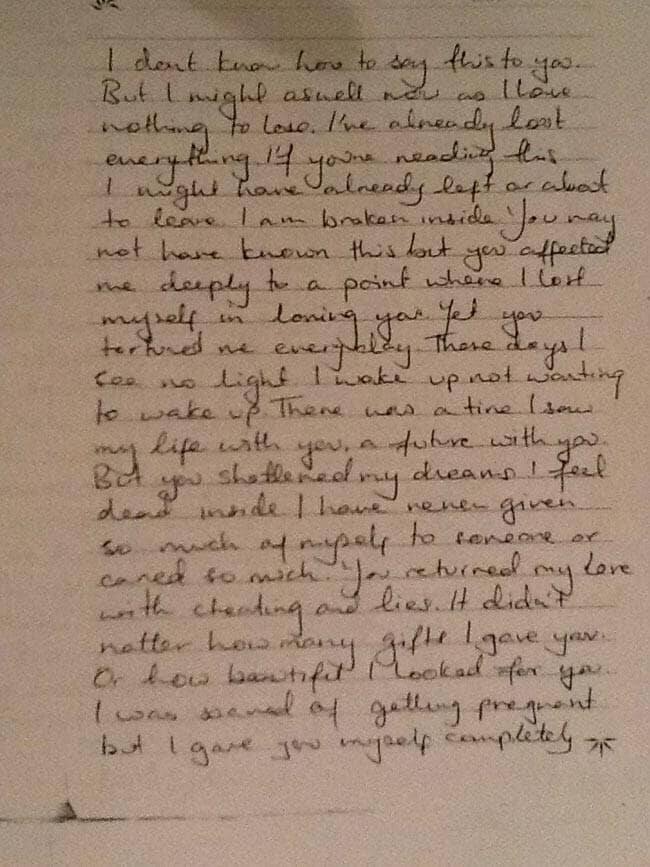 I dont know how to say this to you.
But I might aswell now as I have
nothing to lose. I've already lost
everything If you're reading this
I might have already left or about
to leave. I am broken inside. You may
not have known this but you affected
me deeply to a point where I lost
myself in loving you. Yet you
tortured me everyday. These days I
see no light I wake up not wanting
to wake up. There was a time I saw
my life with you, a future with you.
But you shattered my dreams. I feel
dead inside I have never given
so much of myself to someone or
cared so much. You returned my love
with cheating and lies. It didn't
matter how many gifts I gave you.
Or how beautiful I looked for you
I was scared of getting pregnant
but I gave you myself completely